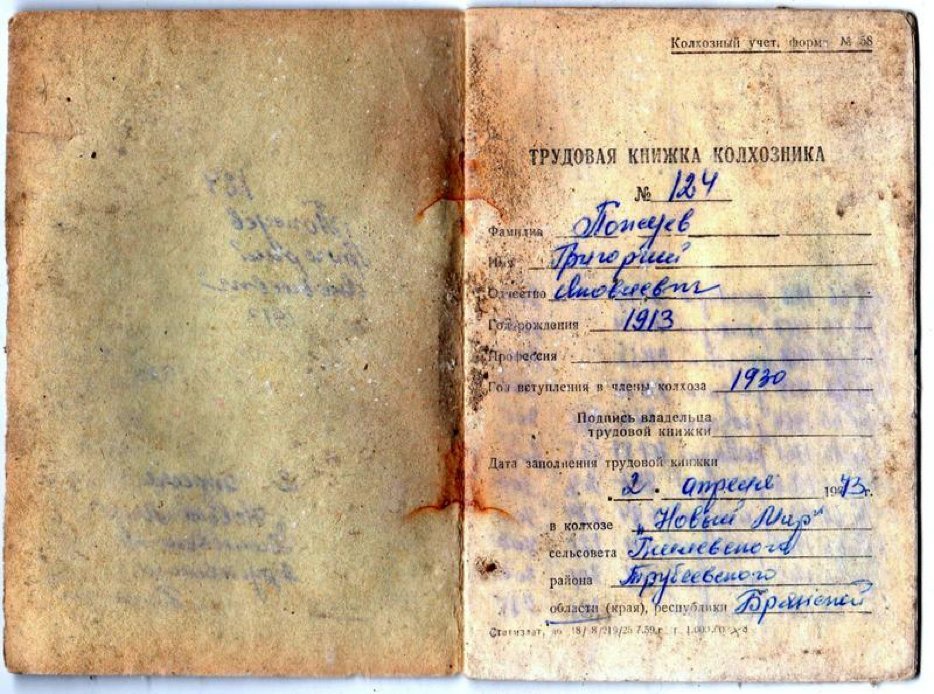 Колхозный учет, форма № 58
ТРУДОВАЯ КНИЖКА КОЛХОЗНИКА
№ 124
Фамилия
Имя Григорий
Отчество Яковлевич
Год рождения 1913
Профессия
Год вступления в члены колхоза 1930
Подпись владельца
трудовой книжки
Дата заполнения трудовой книжки
2 апреля 1973г.
в колхозе „Новый Мир“
сельсовета
района Трубчевского
области (края), республики Брянской